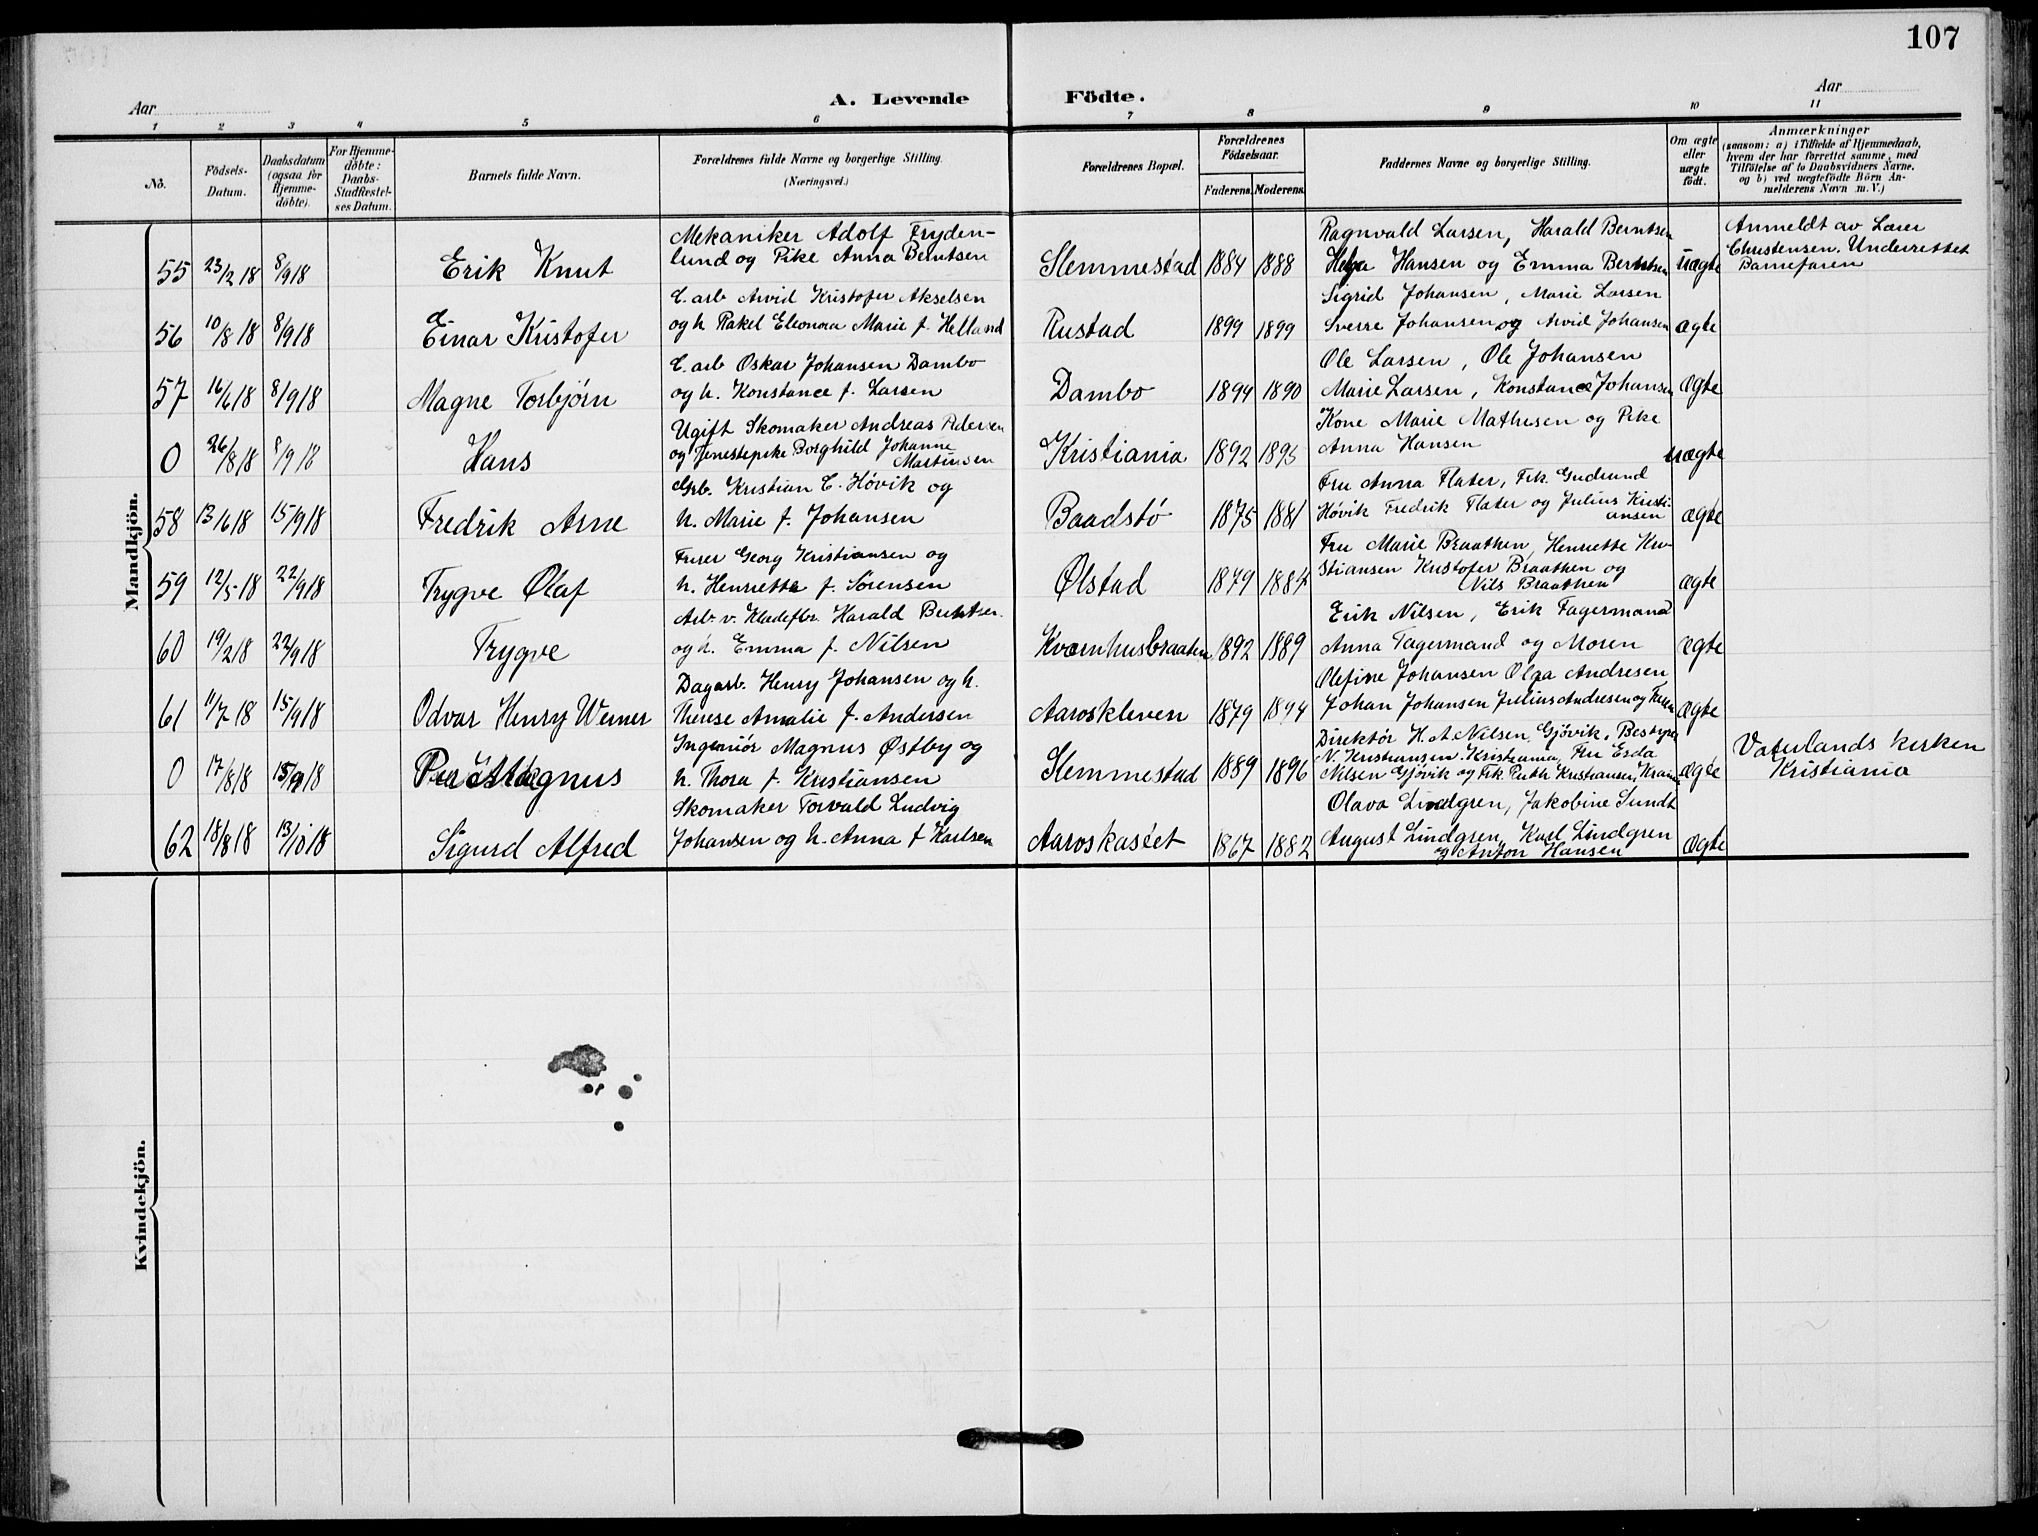 107
Aar
A. Levende Födte.
Aar
1 2 3 4 5 6 7 8 9 10 11
No.
Födsels-Datum.
Daabsdatum (ogsaa for Hjemme-döbte).
For Hjemme-döbte: Daabs-Stadfæstel-ses Datum.
Barnets fulde Navn.
Forældrenes fulde Navne og borgerlige Stilling. (Næringsvei.)
Forældrenes Bopæl.
Forældrenes Födselsaar.
Faderens. Moderens.
Faddernes Navne og borgerlige Stilling.
Om ægte eller uægte født.
Anmærkninger
(saasom: a) i Tilfælde af Hjemmedaab,
hvem der har forrettet samme, med
Tilföielse af to Daabsvidners Navne,
og b) ved uægtefödte Börn An-
melderens Navn m. V.)
Mandkjön.
Mekaniker Adolf Fryden-
lund og Pike Anna Berntsen
55 23/2 18 8/9 18 Erik Knut Slemmestad 1884 1888
Ragnvald Larsen, Harald Berntsen
Helga Hansen og Emma Berntsen uægte
Anmeldt av Lærer
Christensen. Underrettet
Barnefaren
E. arb Arvid Kristofer Akselsen
og h Rakel Eleonora Marie f. Helland
56 10/8 18 8/9 18 Einar Kristofer Rustad 1899 1899
Sigrid Johansen, Marie Larsen
Sverre Johansen og Arvid Johansen ægte
E. arb Oskar Johansen Dambo
og h. Konstance f. Larsen
57 16/6 18 8/9 18 Magne Torbjørn Dambo 1894 1890
Ole Larsen, Ole Johansen
Marie Larsen, Konstance Johansen ægte
Ugift Skomaker Andreas Pedersen
og Tjenestepike Borghild Johanne
Martinsen
0 26/8 18 8/9 18 Hans Kristiania 1892 1895
Kone Marie Mathesen og Pike
Anna Hansen uægte
Grb. Kristian C. Høvik og
h. Marie f. Johansen
58 13/6 18 15/9 18 Fredrik Arne Baadstø 1875 1881
Fru Anna Flater, Frk. Gudrund
Høvik Fredrik Flater og Julius Kristi-
ansen ægte
Georg Kristiansen og
h. Henriette f. Sørensen
59 12/5 18 22/9 18 Trygve Olaf Ølstad 1879 1884
Fru Marie Braathen, Henriette Kri-
stiansen Kristofer Braathen og
Nils Braathen ægte
Arb. v. Klædefbr. Harald Berntsen
og h. Emma f. Nilsen
60 19/2 18 22/9 18 Trygve Kvernhusbraaten 1892 1889
Erik Nilsen, Erik Fagermand
Anna Fagermand og Moren ægte
Dagarb. Henry Johansen og h.
Therese Amalie f. Andersen
61 11/7 18 15/9 18 Odvar Henry Werner Aaroskleven 1879 1894
Olefine Johansen Olga Andresen
Johan Johansen Julius Andresen og ægte
Ingeniör Magnus Østby og
h. Thora f. Kristiansen
0 17/8 18 15/9 18 Magnus Slemmestad 1889 1896
Direktör H. A. Nilsen, Gjövik, Bestyrer
V. Kristiansen. Kristiania, Fru Esda
Nilsen Gjövik og Frk Ruth Kristiansen, ægte
Vaterlands kirken
Kristiania
Skomaker Torvald Ludvig
Johansen og h. Anna f Karlsen
62 18/8 18 13/10 18 Sigurd Alfred Aaroskaséet 1867 1882
Olava Lindgren, Jakobine Sundt
August Lindgren, Karl Lindgren
og Anton Hansen ægte
Kvindekjön.